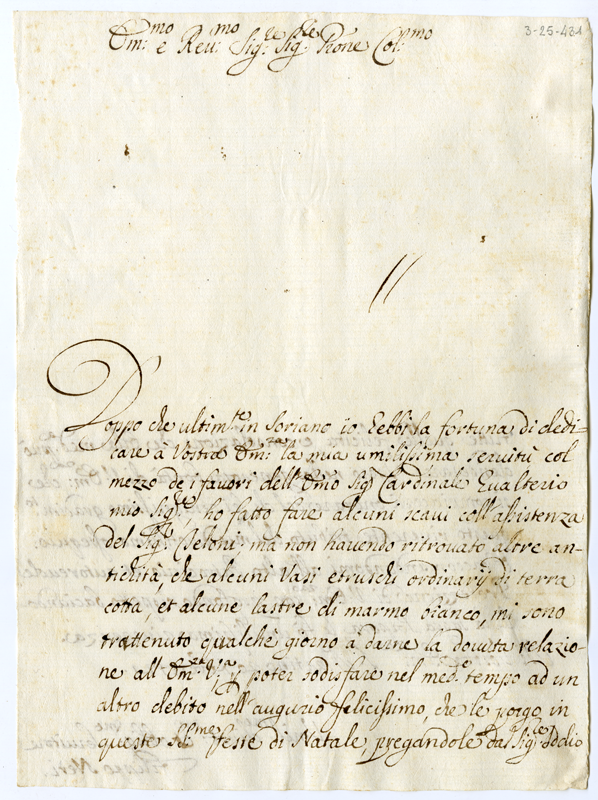 Em:mo e Reu:mo Sig:re Sig:re Prone Col:mo
3-25-431
Doppo che ultim:te in Soriano io hebbi la fortuna di dedi-
care à Vostra Em:za la mia umilissima seruitù col
mezzo de i fauori dell' Emo Sig:r Cardinale Gualterio
mio Sig:re, ho fatto fare alcuni scaui coll' assistenza
del Sig:r mà non hauendo ritrouato altre an-
tichità, che alcuni Vasi etruschi ordinarij di terra
cotta, et alcune lastre di marmo bianco, mi sono
trattenuto qualche giorno à darne la douuta relazio-
ne all' Em:za V:ra p poter sodisfare nel med:o tempo ad un
altro debito nell' augurio felicissimo, che le porgo in
queste SS:me feste di Natale, pregandole dal Sig:re Iddio